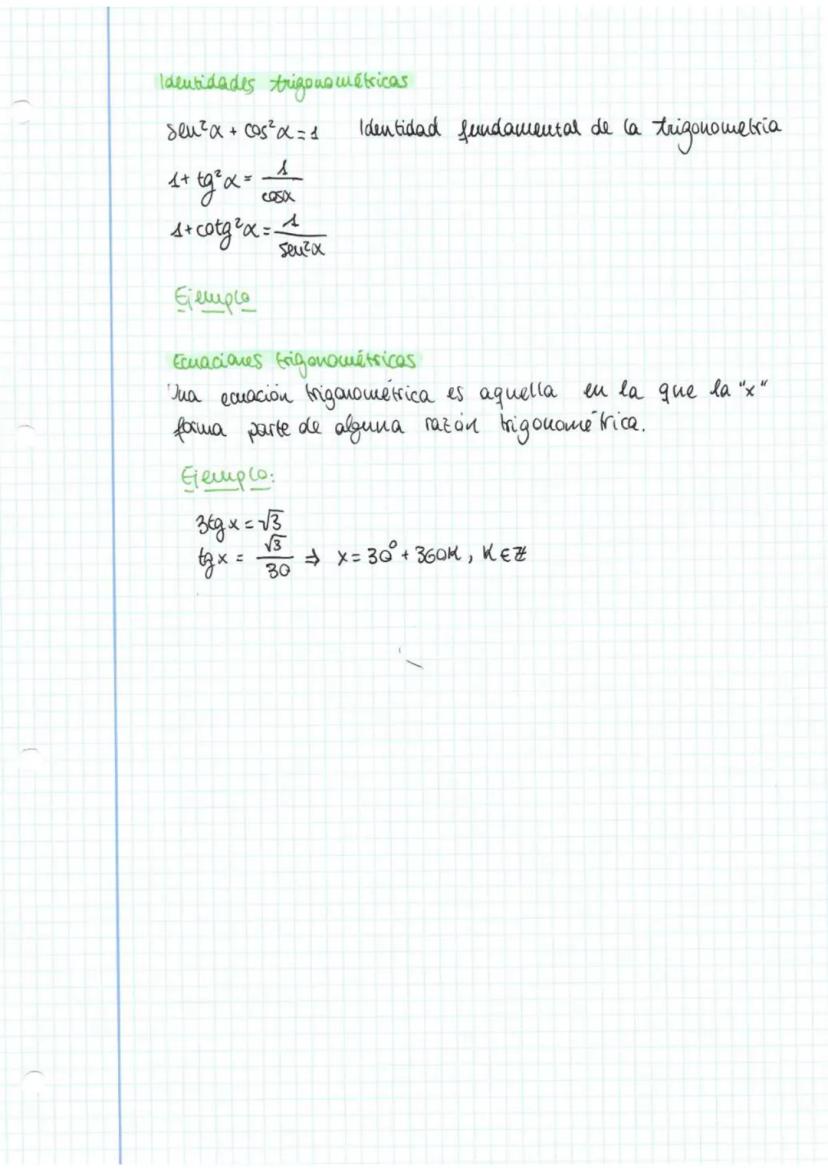 Identidades trigonométricas
sen²α + cos²α = 1 Identidad fundamental de la trigonometría
1 + tg²α = 1/cosα
1 + cotg²α = 1/sen²α
Ejemplo
Ecuaciones trigonométricas
Una ecuación trigonométrica es aquella en la que la "x"
forma parte de alguna razón trigonométrica.
Ejemplo:
3tg x = √3
tg x = √3/30 ⇒ x = 30° + 360K, K ∈ ℤ